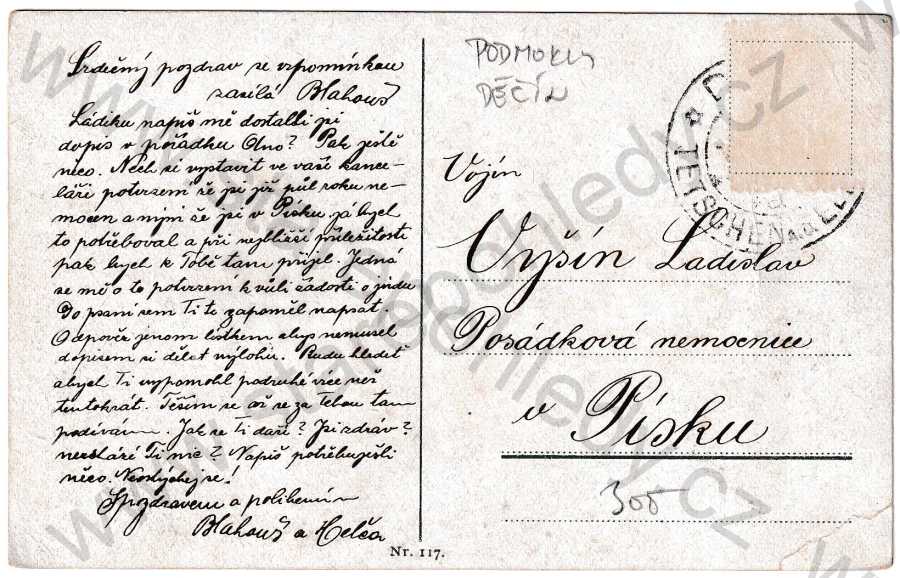 Srdečný pozdrav se vzpomínkou
zasílá Blahouš
Ládiku napiš mě dostalli jsi
dopis v pořádku Ano? Pak ještě
něco. Nech si vystavit ve vaší kance-
láři potvrzení že jsi již půl roku ne-
mocen a nyní že jsi v Písku já bych
to potřeboval a při nejbližší příležitosti
pak bych k Tobě tam přijel. Jedná
se mě o to potvrzení k vůli žádosti o
Do psaní sem Ti to zapoměl napsat.
Odpověz jenom lístkem abys nemusel
dopisem si dělat výlohu. Budu hledět
abych Ti vypomohl podruhé více než
tentokrát. Těším se až se za Tebou tam
podívám. Jak se Ti daří? Jsi zdráv?
neschází Ti nic? Napiš potřebuješli
něco. Neostýchej se!
S pozdravem a políbením
Blahouš a Helča
PODMOKLY
DĚČÍN
TETSCHEN A.d. ELBE
Vojín
Vyšín Ladislav
Posádková nemocnice
v Písku
300
Nr. 117.
www.stare-pohledy.cz